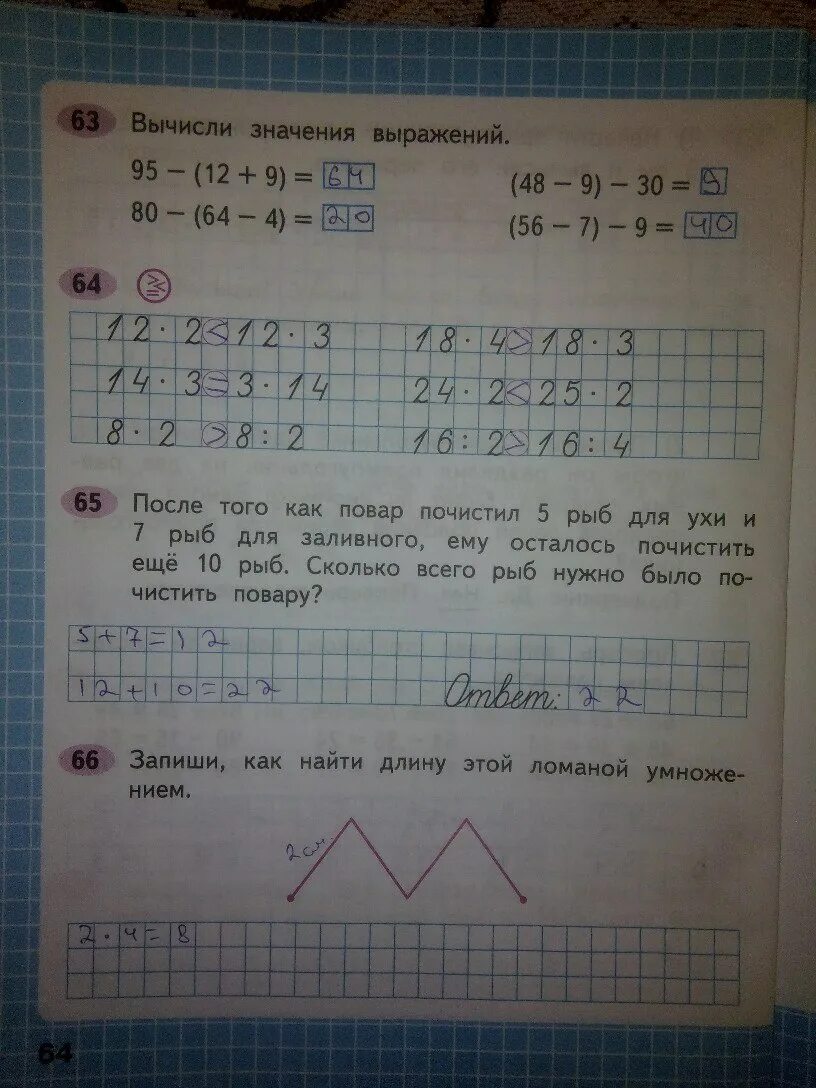 63 Вычисли значения выражений.
95 − (12 + 9) = 64 (48 − 9) − 30 = 9
80 − (64 − 4) = 20 (56 − 7) − 9 = 40
64
12 · 2 < 12 · 3 18 · 4 > 18 · 3
14 · 3 = 3 · 14 24 · 2 < 25 · 2
8 · 2 > 8 : 2 16 : 2 > 16 : 4
65 После того как повар почистил 5 рыб для ухи и
7 рыб для заливного, ему осталось почистить
ещё 10 рыб. Сколько всего рыб нужно было по-
чистить повару?
5+7=12
12+10=22 Ответ: 22
66 Запиши, как найти длину этой ломаной умноже-
нием.
2см
2·4=8
64